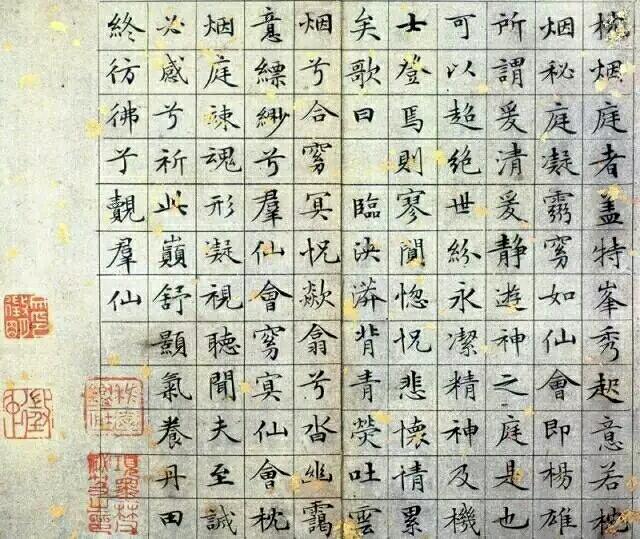 枕烟庭者盖特峯秀起意若枕
烟秘庭凝霛窅如仙會即楊雄
所謂爰清爰静遊神之庭是也
可以超絶世紛永潔精神及機
士登焉則寥闃惚怳悲懷情累
矣歌曰　臨泱漭背青熒吐雲
烟兮合窅冥怳歘翕兮沓幽靄
意縹緲兮羣仙會窅冥仙會枕
烟庭竦魂形凝視聽聞夫至誠
必感兮祈此巔舒顥氣養丹田
終彷彿兮覿羣仙